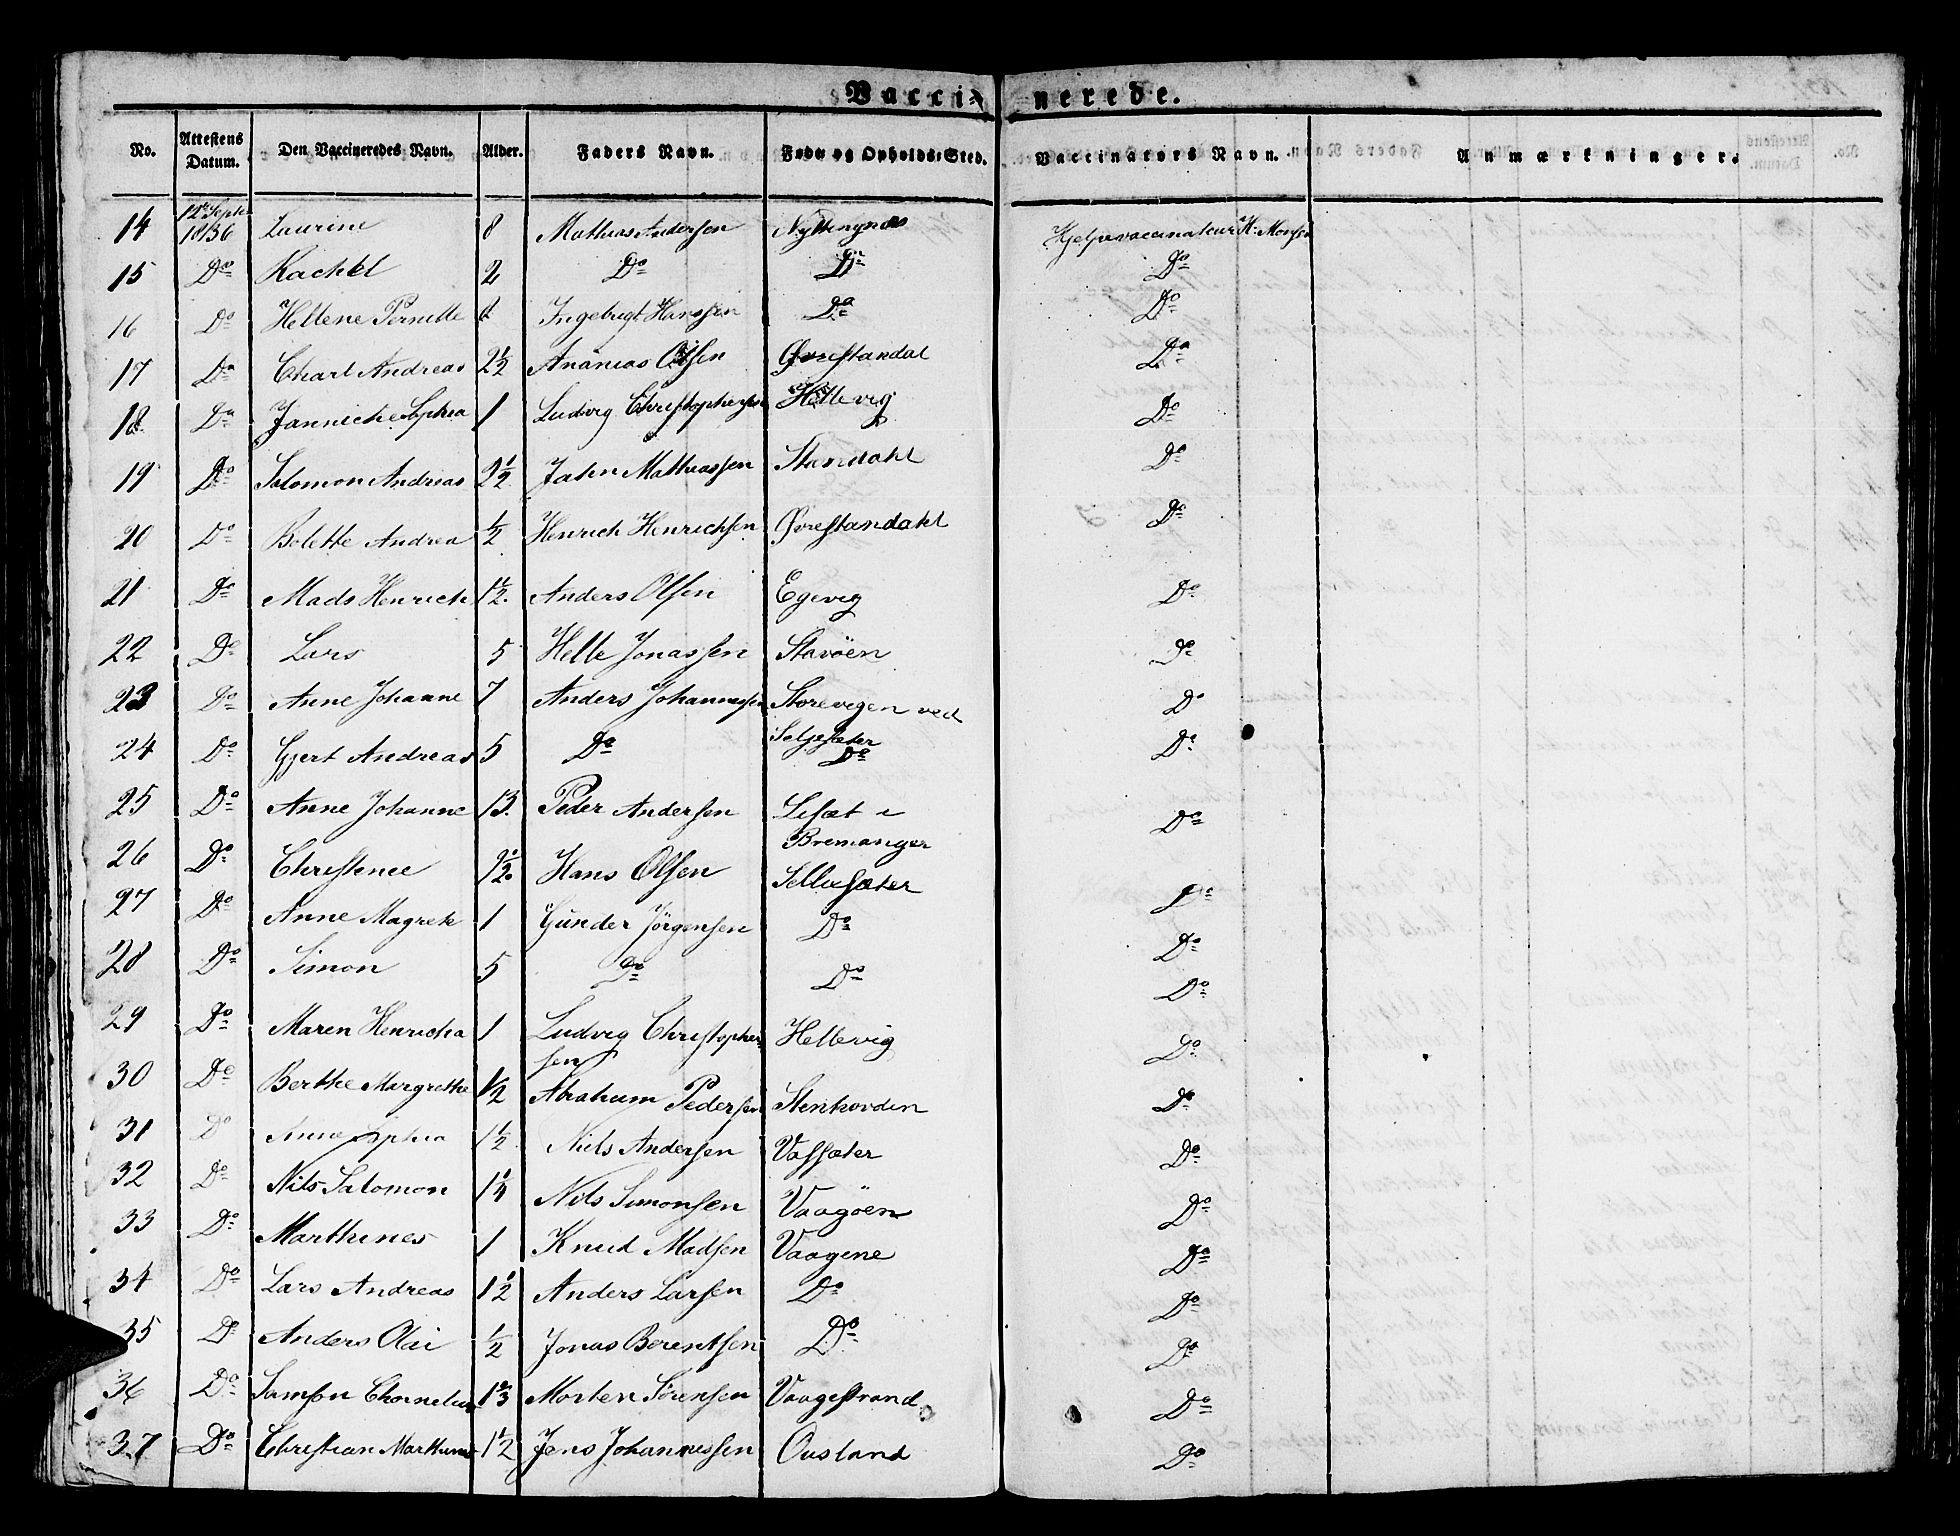 Vaccinerede.
No. Attestens Datum. Den Vaccineredes Navn. Alder. Faders Navn. Føde og Opholds-Sted. Vaccinators Navn. Anmærkninger.
14 12te Septbr 1836 Laurine 8 Mathias Andersen Hjelpevaccinateur H: Monsen
15 Do Rachel 2 Do Do Do
16 Do Hellene Pernille Ingebrigt Hanssen Do Do
17 Do Charl Andreas 2½ Ananias Olsen Øvrestandal Do
18 Do Jannicke Sophia 1 Ludvig Christophersen Hellevig Do
19 Do Salomon Andreas 2½ John Mathiassen Standahl Do
20 Do Bolette Andrea ½ Henrich Henrichsen Øvrestandahl Do
21 Do Mads Henrich 1½ Anders Olsen Egevig Do
22 Do Lars 5 Helle Jonassen Stavöen Do
23 Do Anne Johanne 7 Anders Johannessen Storevigen ved Seljesæter Do
24 Do Gjert Andreas 5 Do Do Do
25 Do Anne Johanne 13. Peder Andersen Lesæt i Bremanger Do
26 Do Christence Hans Olsen Sellesæter Do
27 Do Anne Magrete 1 Gunder Jörgensen Do Do
28 Do Simon 5 Do Do Do
29 Do Maren Henricha 1 Ludvig Christophersen Hellevig Do
30 Do Berthe Margrethe ½ Abraham Pedersen Stenhovden Do
31 Do Anne Sophia 1½ Niels Andersen Vassæter Do
32 Do Nils Salomon 1¼ Nils Simonsen Vaagöen Do
33 Do Marthines 1 Knud Madsen Vaagene Do
34 Do Lars Andreas 1½ Anders Larsen Do Do
35 Do Anders Olai ½ Jonas Berentsen Do Do
36 Do Samson Chornelius 1⅔ Morten Sörensen Vaagestrand Do
37 Do Christian Marthinus 1½ Jens Johannessen Ousland Do